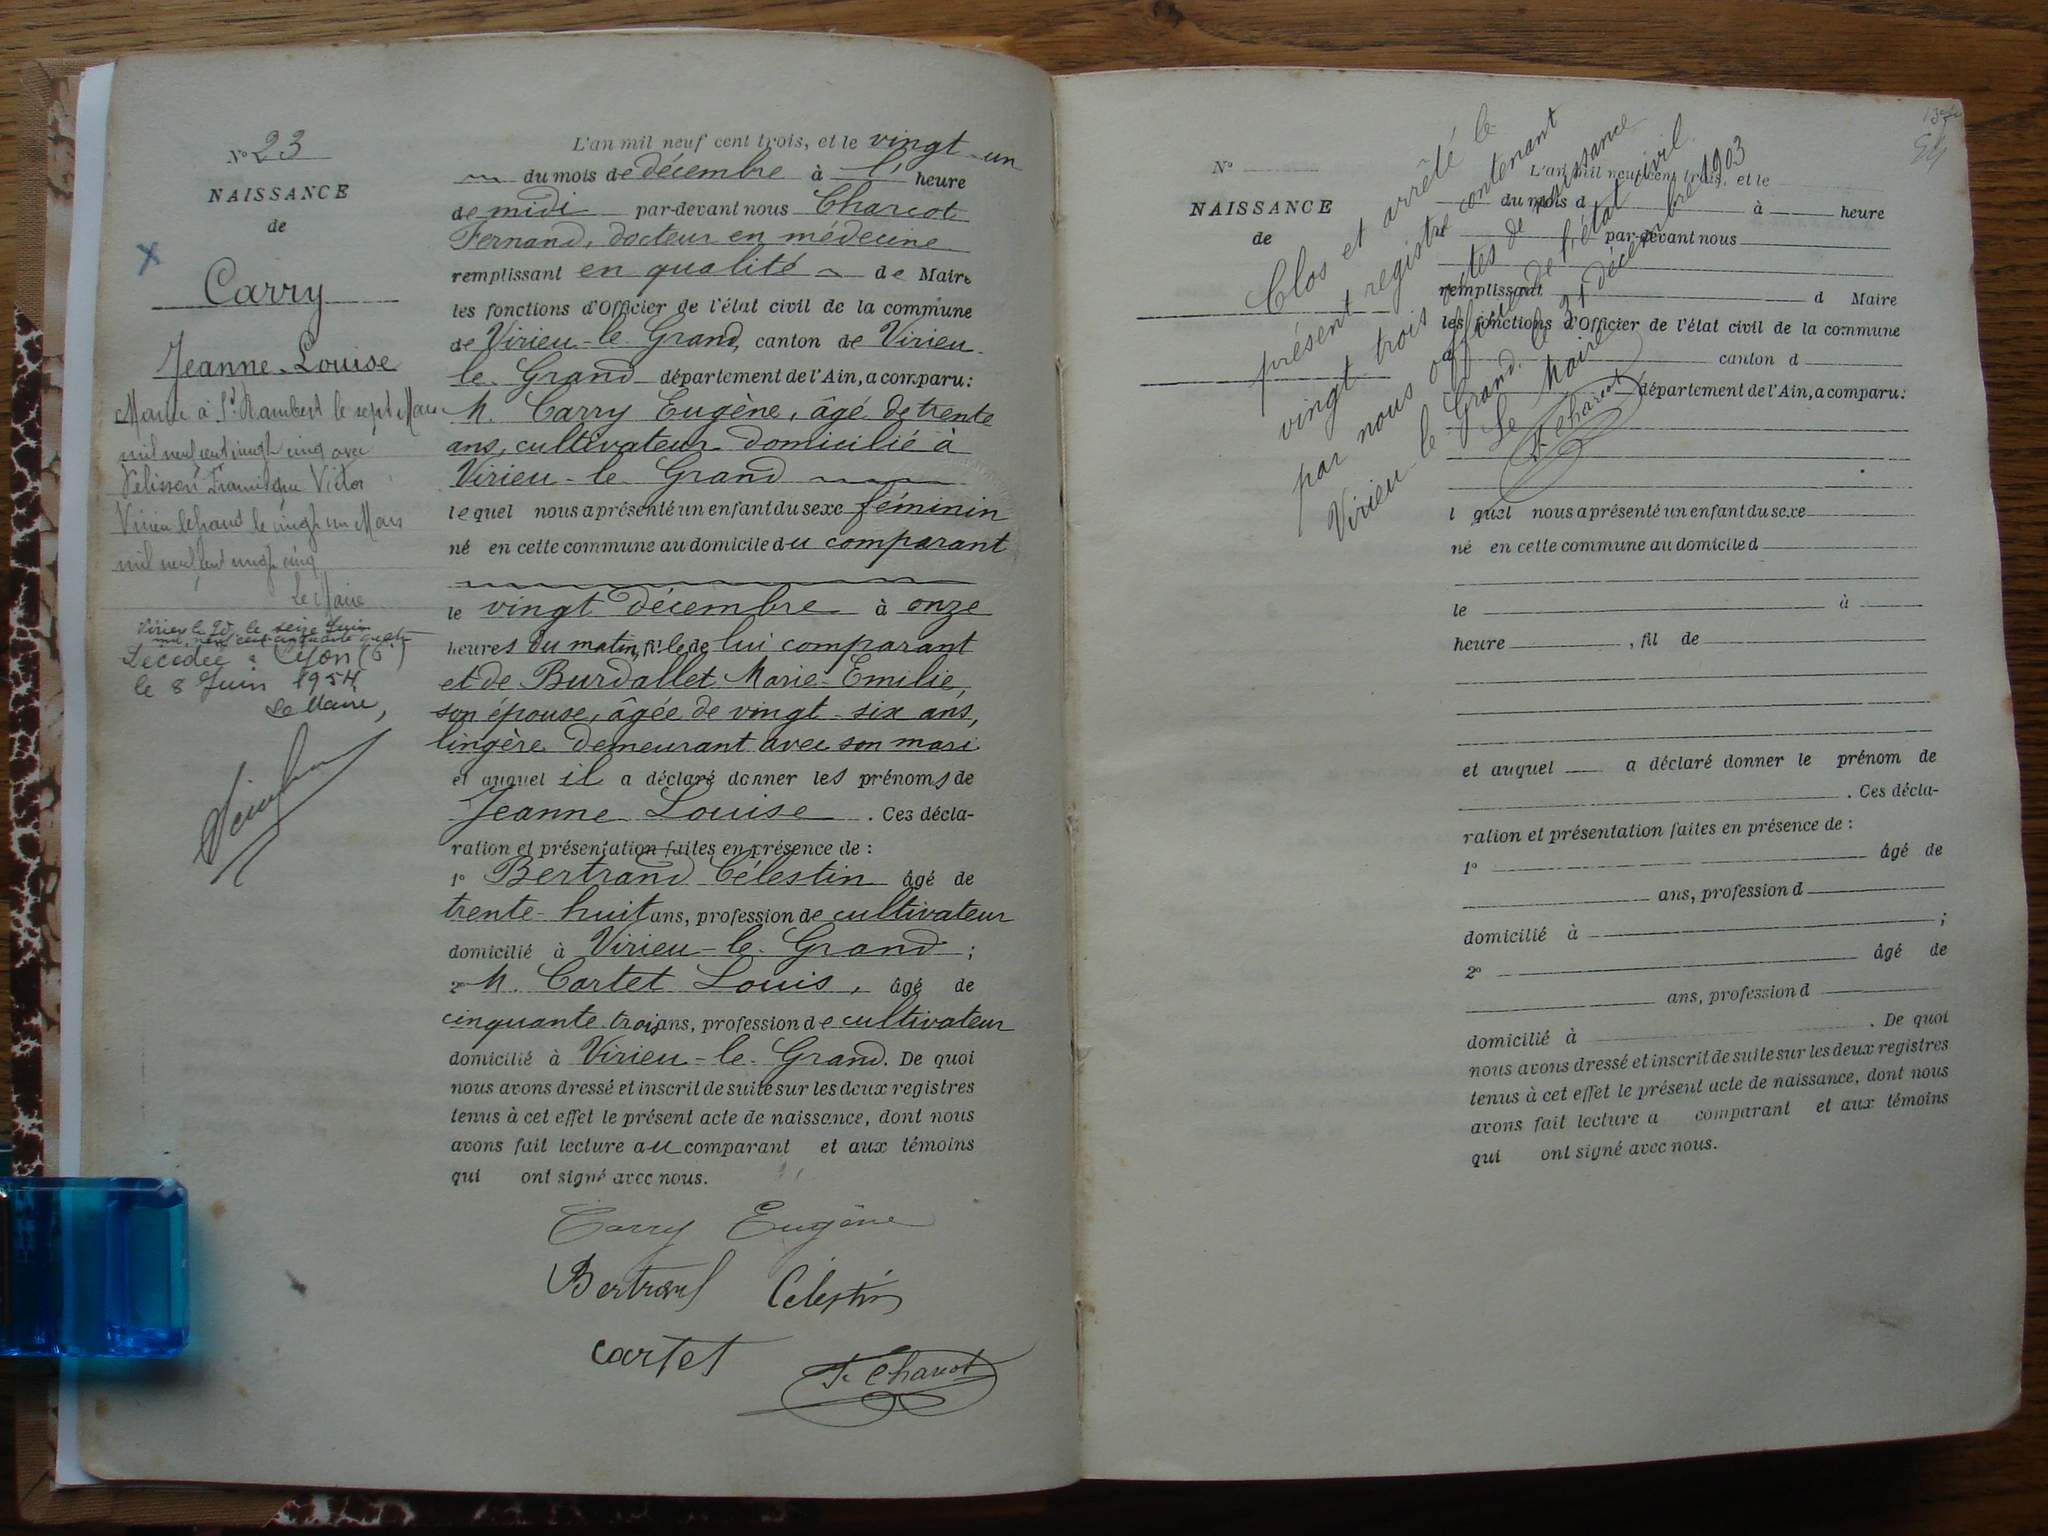 N° 23
NAISSANCE
de
Carry
Jeanne-Louise
Mariée à St Rambert le sept Mars
mil neuf cent vingt cinq avec
Victor
Virieu le Grand le vingt un Mars
mil neuf cent vingt cinq
Le Maire
Virieu le Gd le seize Juin
mil neuf cent cinquante quatre
Décédée à Lyon
le 8 Juin 1954
Le Maire,
L'an mil neuf cent trois, et le vingt-un
du mois de décembre à 1 heure
de midi par-devant nous Charcot
Fernand, docteur en médecine
remplissant en qualité de Maire
les fonctions d'Officier de l'état civil de la commune
de Virieu-le-Grand, canton de Virieu-
le-Grand département de l'Ain, a comparu:
M. Carry Eugène, âgé de trente
ans, cultivateur domicilié à
Virieu-le-Grand
lequel nous a présenté un enfant du sexe féminin
né en cette commune au domicile du comparant
le vingt décembre à onze
heures du matin, fille de lui comparant
et de Burdallet Marie-Emilie,
son épouse, âgée de vingt-six ans,
lingère demeurant avec son mari
et auquel il a déclaré donner les prénoms de
Jeanne Louise. Ces décla-
ration et présentation faites en présence de :
1° Bertrand Célestin âgé de
trente-huit ans, profession de cultivateur
domicilié à Virieu-le-Grand ;
2° M. Cartet Louis, âgé de
cinquante-trois ans, profession de cultivateur
domicilié à Virieu-le-Grand. De quoi
nous avons dressé et inscrit de suite sur les deux registres
tenus à cet effet le présent acte de naissance, dont nous
avons fait lecture au comparant et aux témoins
qui ont signé avec nous.
Carry Eugène
Bertrand Célestin
Cartet
F. Charcot
N°
NAISSANCE
de
Clos et arrêté le
présent registre contenant
vingt trois actes de naissance
par nous officier de l'état civil.
Virieu-le-Grand, le 31 décembre 1903
Le Maire
F. Charcot
L'an mil neuf cent trois, et le
du mois d à heure
d par-devant nous
remplissant d Maire
les fonctions d'Officier de l'état civil de la commune
d canton d
département de l'Ain, a comparu:
l quel nous a présenté un enfant du sexe
né en cette commune au domicile d
le à
heure , fil de
et auquel a déclaré donner le prénom de
. Ces décla-
ration et présentation faites en présence de :
1° âgé de
ans, profession d
domicilié à ;
2° âgé de
ans, profession d
domicilié à . De quoi
nous avons dressé et inscrit de suite sur les deux registres
tenus à cet effet le présent acte de naissance, dont nous
avons fait lecture a comparant et aux témoins
qui ont signé avec nous.